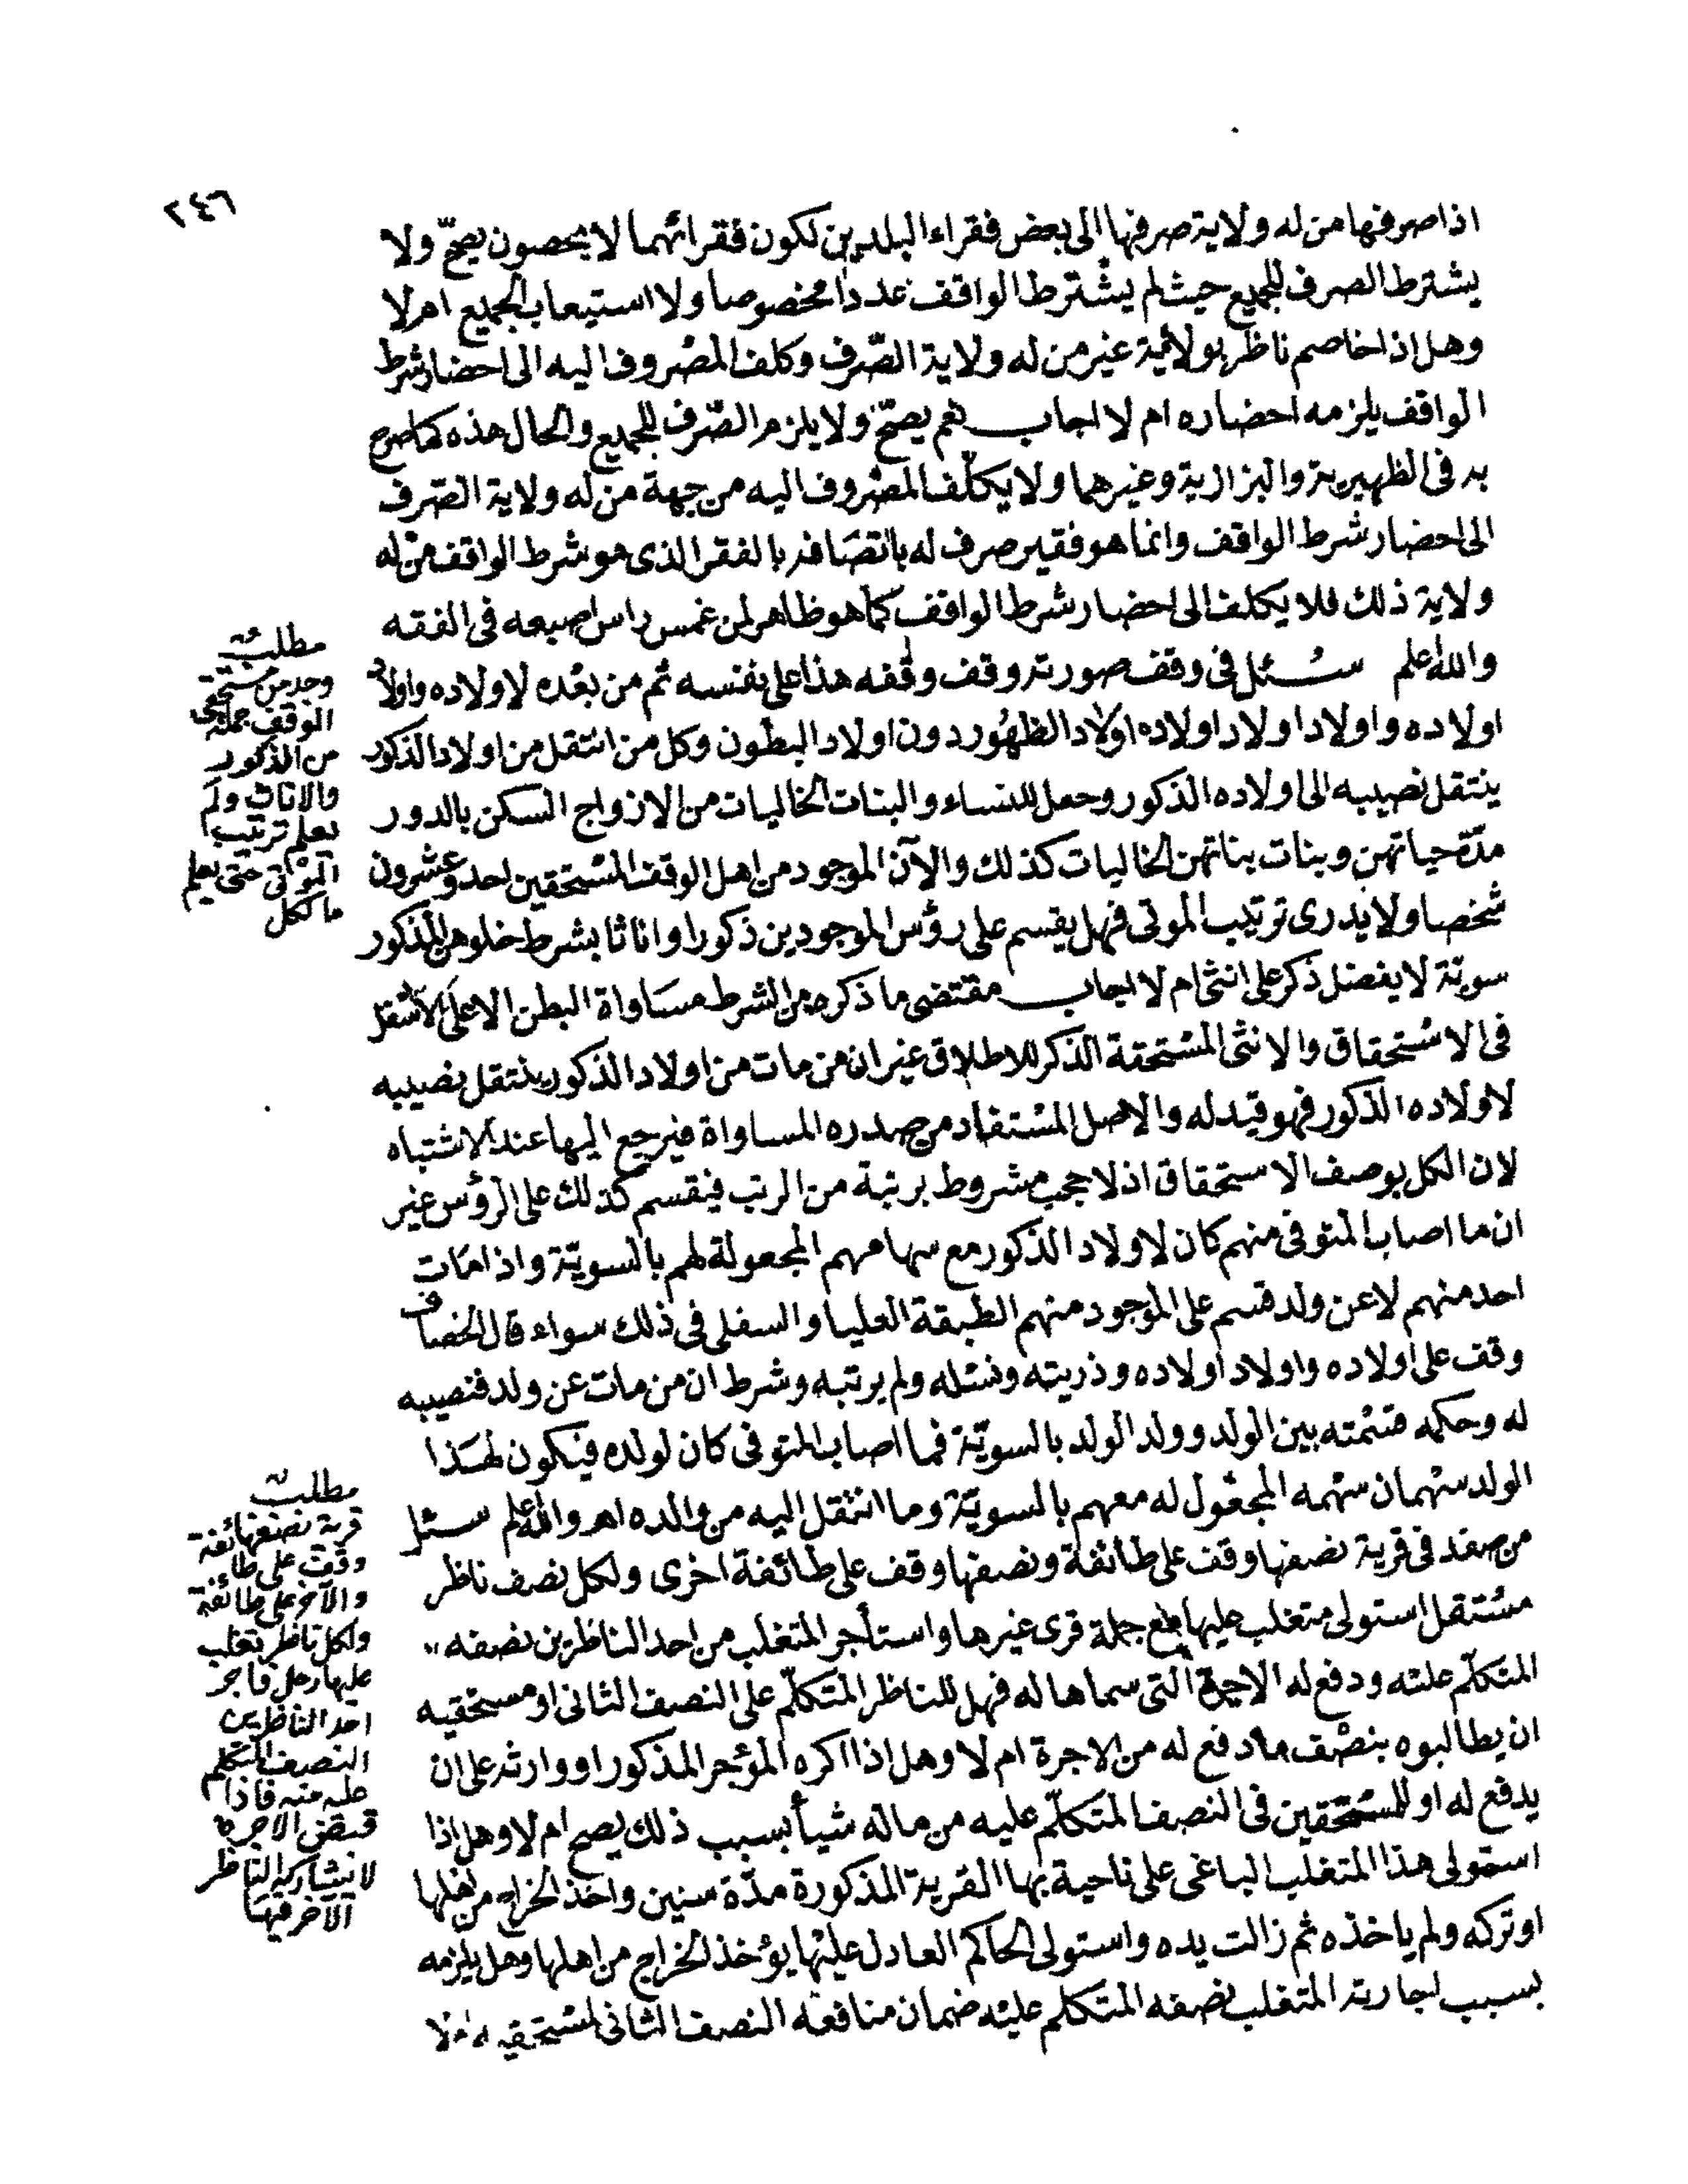 ٢٤٦
اذا صرفها من له ولاية صرفها الى بعض فقراء البلدين لكون فقرائهما لا يحصون يصح ولا
يشترط الصرف للجميع حيث لم يشترط الواقف عددا مخصوصا ولا استيعاب الجميع ام لا
وهل اذا خاصم ناظر بولائية غير من له ولاية الصرف وكلف المصروف اليه الى احضار شرط
الواقف يلزمه احضاره ام لا اجاب نعم يصح ولا يلزم الصرف للجميع والحال هذه كما صرح
به فى الظهيرية والبزازية وغيرهما ولا يكلف المصروف اليه من جهة من له ولاية الصرف
الى احضار شرط الواقف وانما هو فقير صرف له باتصافه بالفقر الذى هو شرط الواقف من له
ولاية ذلك فلا يكلف الى احضار شرط الواقف كما هو ظاهر لمن غمس راس اصبعه فى الفقه
والله اعلم سئل فى وقف صورته وقف وقفه هذا على نفسه ثم من بعده لاولاده واولاد
اولاده واولاد اولاد اولاده اولاد الظهور دون اولاد البطون وكل من انتقل من اولاد الذكور
ينتقل نصيبه الى اولاده الذكور وجعل للنساء والبنات الخاليات من الازواج السكن بالدور
مدة حياتهن وبنات بناتهن الخاليات كذلك والآن الموجود من اهل الوقف المستحقين احد وعشرون
شخصا ولا يدرى ترتيب الموتى فهل يقسم على رؤس الموجودين ذكورا واناثا بشرط خلوهن المذكور
سوية لا يفضل ذكر على انثى ام لا اجاب مقتضى ما ذكره من الشرط مساواة البطن الاعلى الاسفل
فى الاستحقاق والانثى المستحقة الذكر للاطلاق غير ان من مات من اولاد الذكور ينتقل نصيبه
لاولاده الذكور فهو قيد له والاصل المستفاد من صدره المساواة فيرجع اليها عند الاشتباه
لان الكل بوصف الاستحقاق اذ لا حجب مشروط برتبة من الرتب فيقسم كذلك على الرؤس غير
ان ما اصاب المتوفى منهم كان لاولاد الذكور مع سهامهم المجعولة لهم بالسوية واذا مات
احد منهم لا عن ولد قسم على الموجود منهم الطبقة العليا والسفلى فى ذلك سواء قال الخصاف
وقف على اولاده واولاد اولاده وذريته ونسله ولم يرتبه وشرط ان من مات عن ولد فنصيبه
له وحكمه قسمته بين الولد وولد الولد بالسوية فما اصاب المتوفى كان لولده فيكون لهذا
الولد سهمان سهمه المجعول له معهم بالسوية وما انتقل اليه من والده اهـ والله اعلم سئل
من صفد فى قرية نصفها وقف على طائفة ونصفها وقف على طائفة اخرى ولكل نصف ناظر
مستقل استولى متغلب عليها مع جملة قرى غيرها واستأجر المتغلب من احد الناظرين نصفه
المتكلم عليه ودفع له الاجرة التى سماها له فهل للناظر المتكلم على النصف الثانى او مستحقيه
ان يطالبوه بنصف ما دفع له من الاجرة ام لا وهل اذا اكره المؤجر المذكور او وارثه على ان
يدفع له او للمستحقين فى النصف المتكلم عليه من ماله شيأ بسبب ذلك يصح ام لا وهل اذا
استولى هذا المتغلب الباغى على ناحية بها القرية المذكورة مدة سنين واخذ الخراج من اهلها
او تركه ولم ياخذه ثم زالت يده واستولى الحاكم العادل عليها يؤخذ الخراج من اهلها وهل يلزمه
بسبب ايجارية المتغلب نصفه المتكلم عليه ضمان منافعه النصف الثانى لمستحقيه ام لا
مطلب
وجد من مستحقى
الوقف جملة
من الذكور
والاناث ولم
يعلم ترتيب
الموتى حتى يعلم
ما لكل
مطلب
قرية نصفها
وقف على طائفة
والآخر على طائفة
ولكل ناظر تغلب
عليها رجل فاجر
احد الناظرين
النصف المتكلم
عليه منه فاذا
قبض الاجرة
لا يشاركه الناظر
الآخر فيها